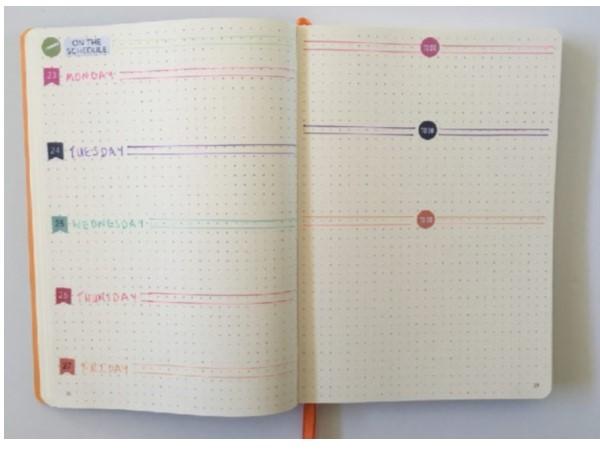 ON THE
SCHEDULE
23 MONDAY
24 TUESDAY
25 WEDNESDAY
26 THURSDAY
27 FRIDAY
TO DO
TO DO
TO DO